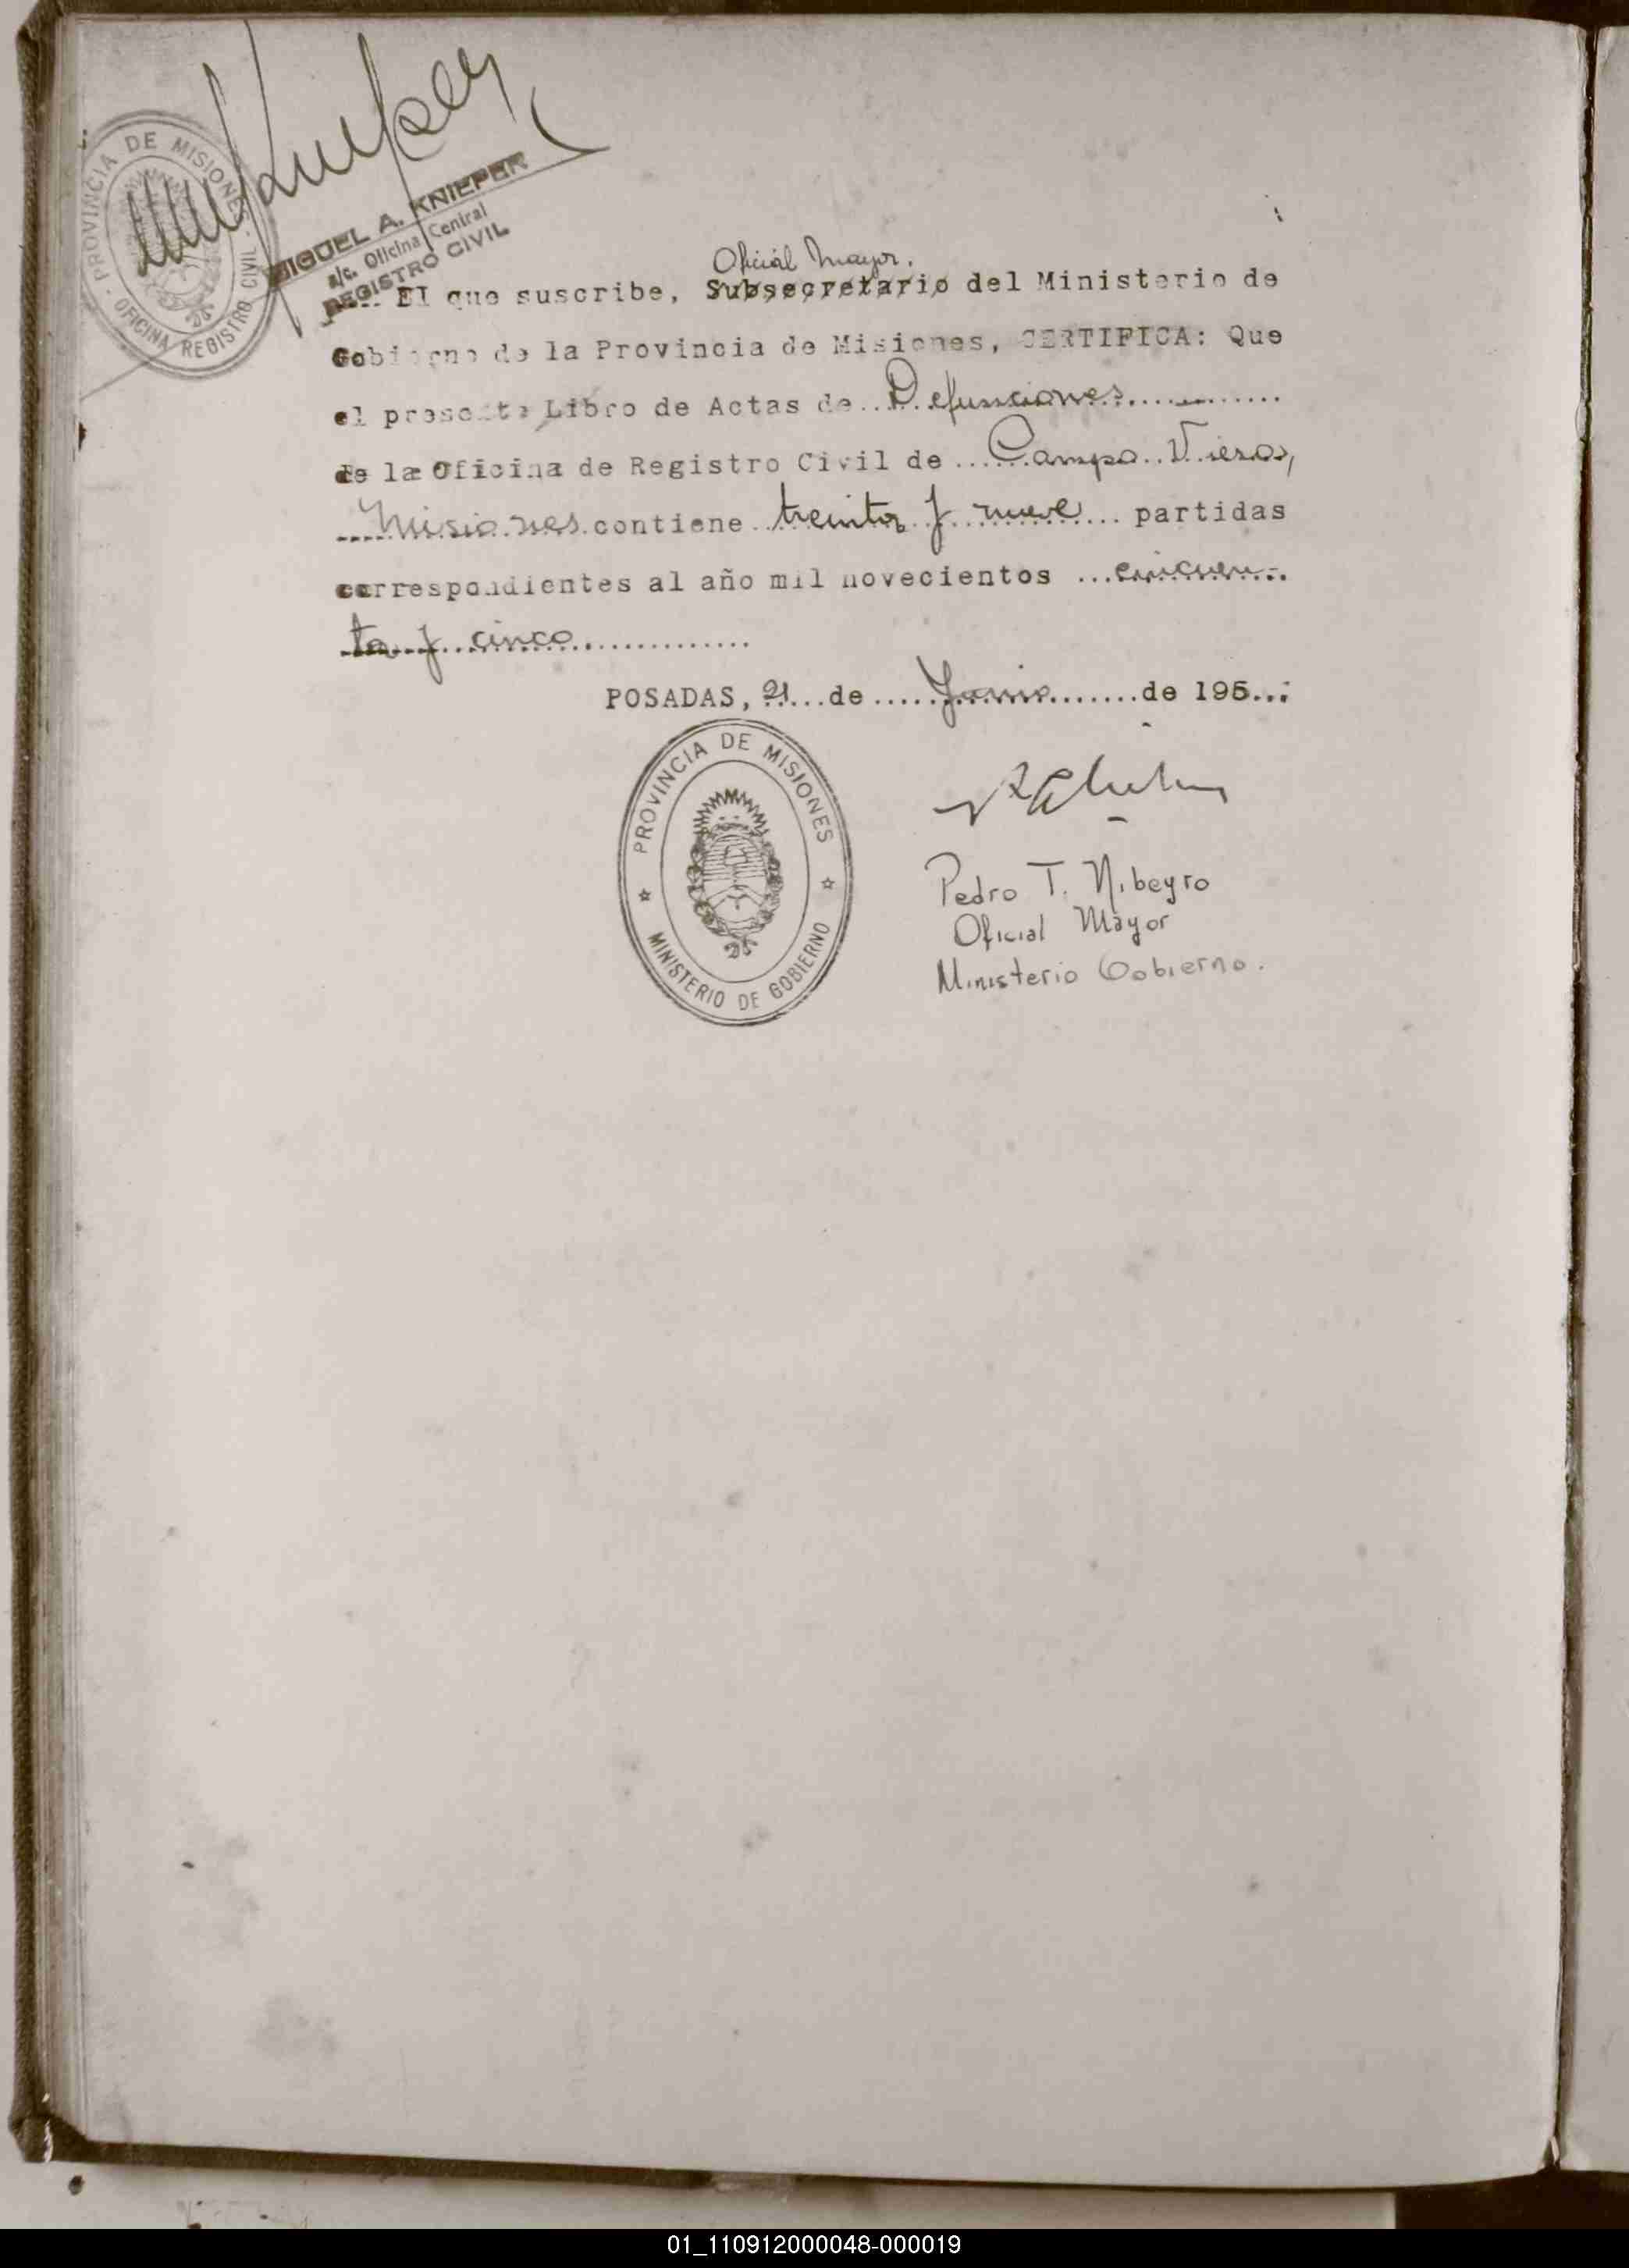 PROVINCIA DE MISIONES - OFICINA REGISTRO CIVIL -
MIGUEL A. KNIEPER
a/c. Oficina Central
REGISTRO CIVIL
Oficial Mayor.
El que suscribe, Subsecretario del Ministerio de
Gobierno de la Provincia de Misiones, CERTIFICA: Que
el presente Libro de Actas de...Defunciones............
de la Oficina de Registro Civil de ......Campo..Viera,
....Misiones.contiene..treinta..y..nueve... partidas
correspondientes al año mil novecientos ...cincuen-
ta y cinco................
POSADAS, 21...de.....Junio.......de 195...
PROVINCIA DE MISIONES
MINISTERIO DE GOBIERNO
Pedro T. Ribeyro
Oficial Mayor
Ministerio Gobierno.
01_110912000048-000019